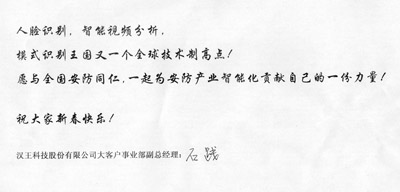 人脸识别，智能视频分析，
模式识别王国又一个全球技术制高点！
愿与全国安防同仁，一起为安防产业智能化贡献自己的一份力量！
祝大家新春快乐！
汉王科技股份有限公司大客户事业部副总经理：石践